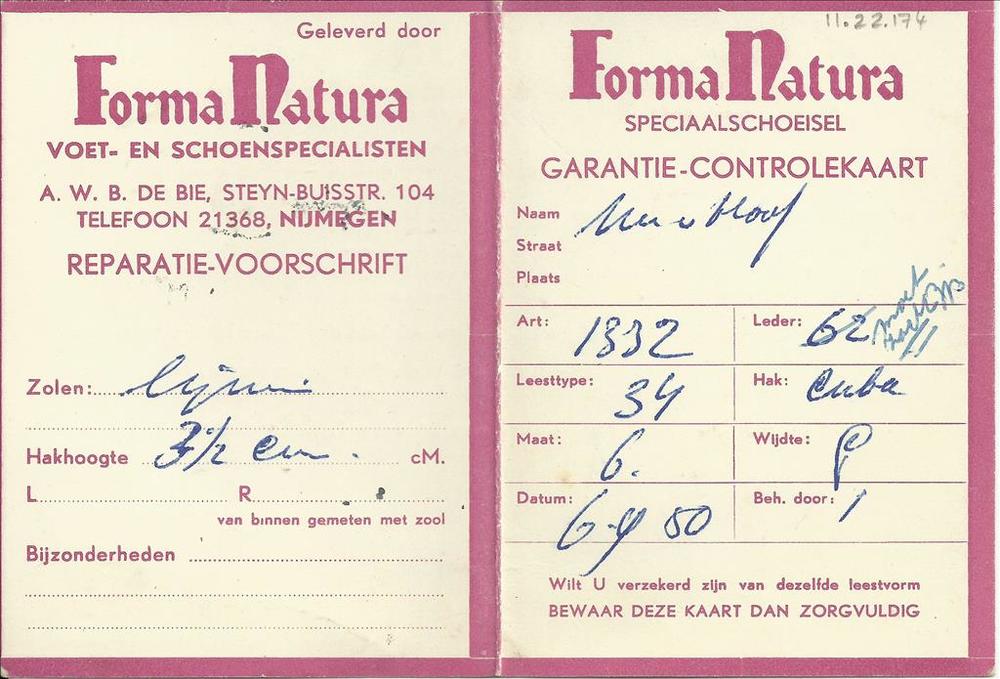 Geleverd door
Forma Natura
VOET- EN SCHOENSPECIALISTEN
A. W. B. DE BIE, STEYN-BUISSTR. 104
TELEFOON 21368, NIJMEGEN
REPARATIE-VOORSCHRIFT
Zolen:
Hakhoogte 3½ cm. cM.
L R
van binnen gemeten met zool
Bijzonderheden
11.22.174
Forma Natura
SPECIAALSCHOEISEL
GARANTIE-CONTROLEKAART
Naam
Straat
Plaats
Art: 1332 Leder: 62
Leesttype: 34 Hak: Cuba
Maat: 6. Wijdte:
Datum: 6-9 50 Beh. door: 1
Wilt U verzekerd zijn van dezelfde leestvorm
BEWAAR DEZE KAART DAN ZORGVULDIG